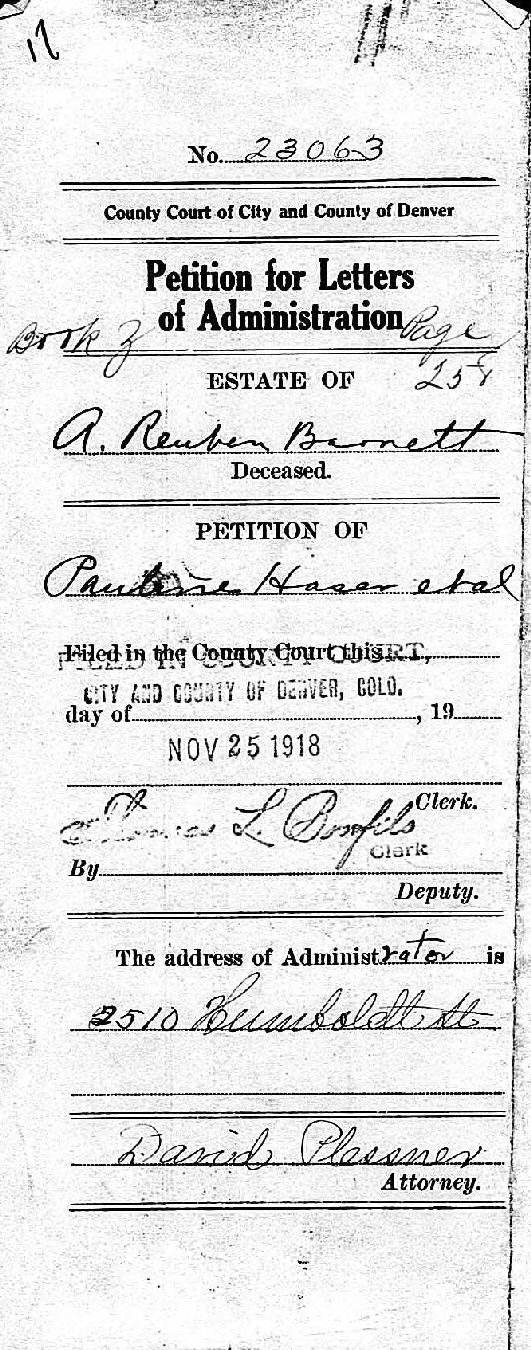 17
No. 23063
County Court of City and County of Denver
Petition for Letters
of Administration
Book Z Page
258
ESTATE OF
A. Reuben Barnett
Deceased.
PETITION OF
Pauline Haser et al
Filed in the County Court this
FILED IN COUNTY COURT,
CITY AND COUNTY OF DENVER, COLO.
day of , 19
NOV 25 1918
Thomas L. Bonfils Clerk.
Clerk
By
Deputy.
The address of Administrator is
2510 Humboldt St
David Plessner
Attorney.